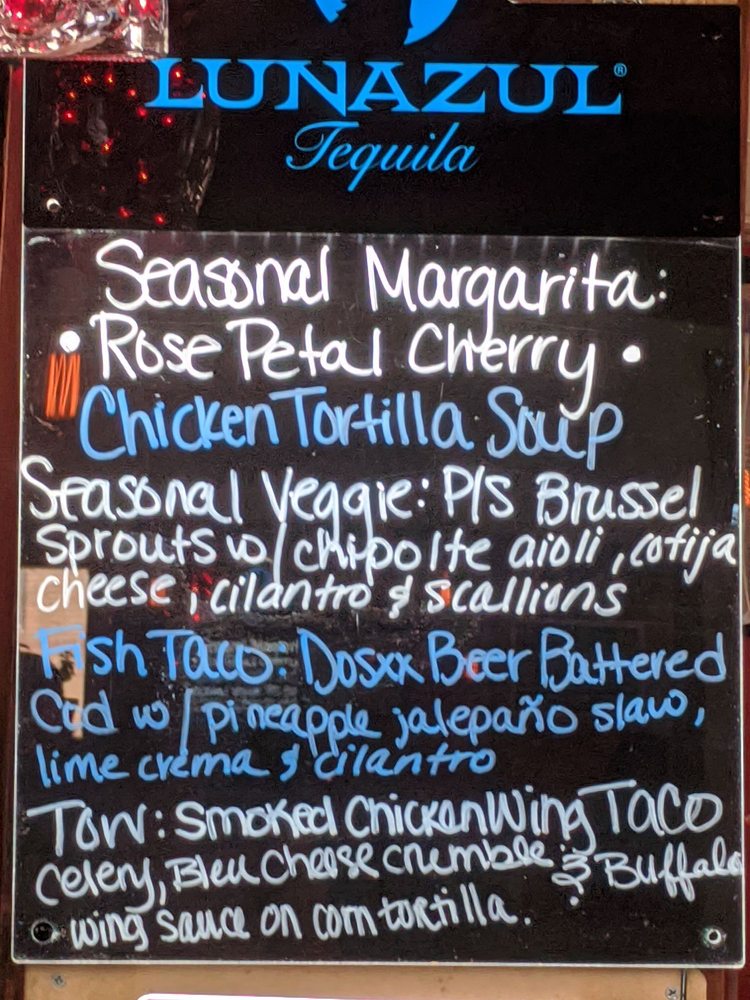 LUNAZUL®
Tequila
Seasonal Margarita:
• Rose Petal Cherry •
Chicken Tortilla Soup
Seasonal Veggie: P/S Brussel
Sprouts w/ chipolte aioli, cotija
cheese, cilantro & scallions
Fish Taco: Dosxx Beer Battered
Cod w/ pineapple jalepaño slaw,
lime crema & cilantro
TOW: Smoked Chicken Wing Taco
Celery, Bleu Cheese crumble & Buffalo
wing sauce on corn tortilla.